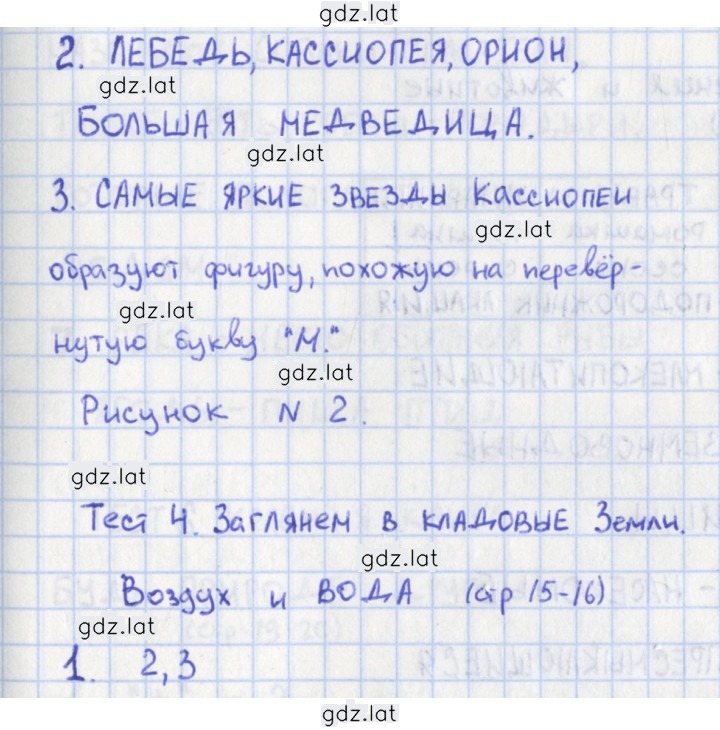 gdz.lat
2. ЛЕБЕДЬ, КАССИОПЕЯ, ОРИОН,
gdz.lat
БОЛЬШАЯ МЕДВЕДИЦА.
gdz.lat
3. САМЫЕ ЯРКИЕ ЗВЕЗДЫ КАССИОПЕИ
gdz.lat
образуют фигуру, похожую на перевёр-
gdz.lat
нутую букву "М."
gdz.lat
Рисунок N 2.
gdz.lat
Тест 4. Заглянем в кладовые Земли.
gdz.lat
Воздух и ВОДА (стр 15-16)
gdz.lat
1. 2,3
gdz.lat